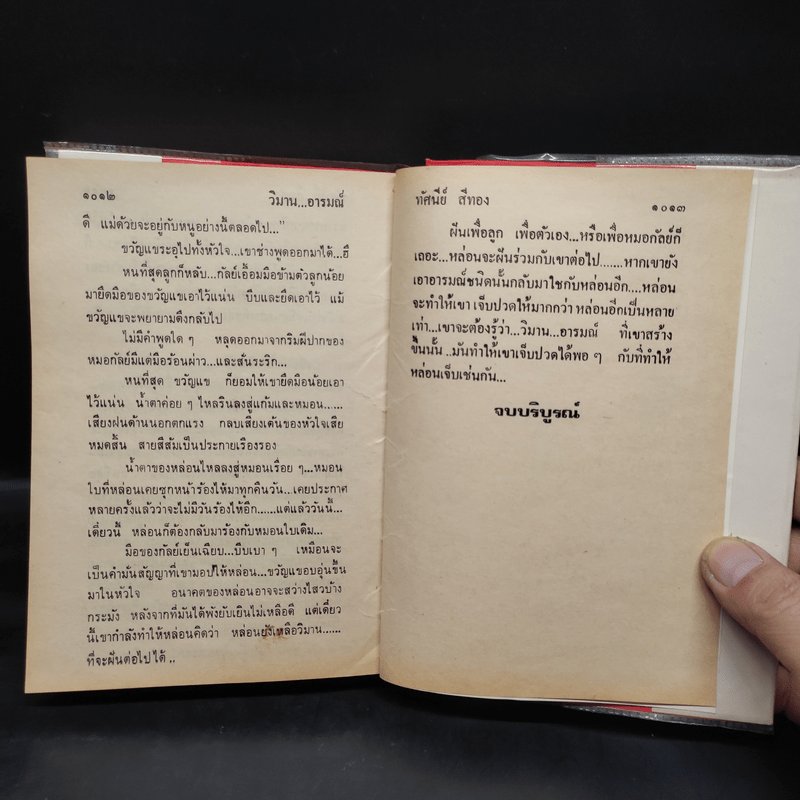 ๑๐๑๒
วิมาน...อารมณ์
ดี แม่ด้วยจะอยู่กับหนูอย่างนี้ตลอดไป..."
ขวัญแขระอุไปทั้งหัวใจ...เขาช่างพูดออกมาได้...ฮึ
หนที่สุดลูกก็หลับ...กัลย์เอื้อมมือข้ามตัวลูกน้อย
มายึดมือของขวัญแขเอาไว้แน่น บีบและยึดเอาไว้ แม้
ขวัญแขจะพยายามดึงกลับไป
ไม่มีคำพูดใด ๆ หลุดออกมาจากริมฝีปากของ
หมอกัลย์มีแต่มือร้อนผ่าว...และสั่นระริก...
หนที่สุด ขวัญแข ก็ยอมให้เขายึดมือน้อยเอา
ไว้แน่น น้ำตาค่อย ๆ ไหลรินลงสู่แก้มและหมอน......
เสียงฝนด้านนอกตกแรง กลบเสียงเต้นของหัวใจเสีย
หมดสิ้น สายสีส้มเป็นประกายเรืองรอง
น้ำตาของหล่อนไหลลงสู่หมอนเรื่อย ๆ...หมอน
ใบที่หล่อนเคยซุกหน้าร้องไห้มาทุกคืนวัน...เคยประกาศ
หลายครั้งแล้วว่าจะไม่มีวันร้องไห้อีก......แต่แล้ววันนี้...
เดี๋ยวนี้ หล่อนก็ต้องกลับมาร้องกับหมอนใบเดิม...
มือของกัลย์เย็นเฉียบ...บีบเบา ๆ เหมือนจะ
เป็นคำมั่นสัญญาที่เขามอบให้หล่อน...ขวัญแขอบอุ่นขึ้น
มาในหัวใจ อนาคตของหล่อนอาจจะสว่างไสวบ้าง
กระมัง หลังจากที่มันได้พังยับเยินไม่เหลือดี แต่เดี๋ยว
นี้เขากำลังทำให้หล่อนคิดว่า หล่อนยังเหลือวิมาน......
ที่จะฝันต่อไปได้ ..
ทัศนีย์ สีทอง
๑๐๑๓
ฝืนเพื่อลูก เพื่อตัวเอง...หรือเพื่อหมอกัลย์ก็
เถอะ...หล่อนจะฝืนร่วมกับเขาต่อไป.......หากเขายัง
เอาอารมณ์ชนิดนั้นกลับมาใชกับหล่อนอีก....หล่อน
จะทำให้เขา เจ็บปวดให้มากกว่า หล่อนอีกเป็นหลาย
เท่า...เขาจะต้องรู้ว่า...วิมาน...อารมณ์ ที่เขาสร้าง
ขึ้นนั้น ..มันทำให้เขาเจ็บปวดได้พอ ๆ กับที่ทำให้
หล่อนเจ็บเช่นกัน...
จบบริบูรณ์